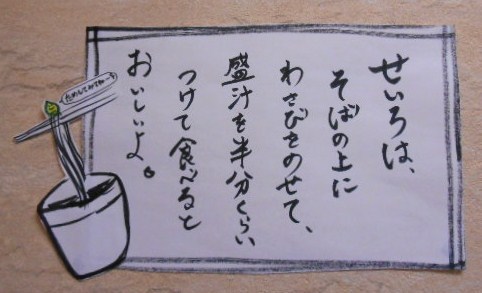 せいろは、
そばの上に
わさびをのせて、
盛汁を半分くらい
つけて食べると
おいしいよ。
ためしてみてねー!